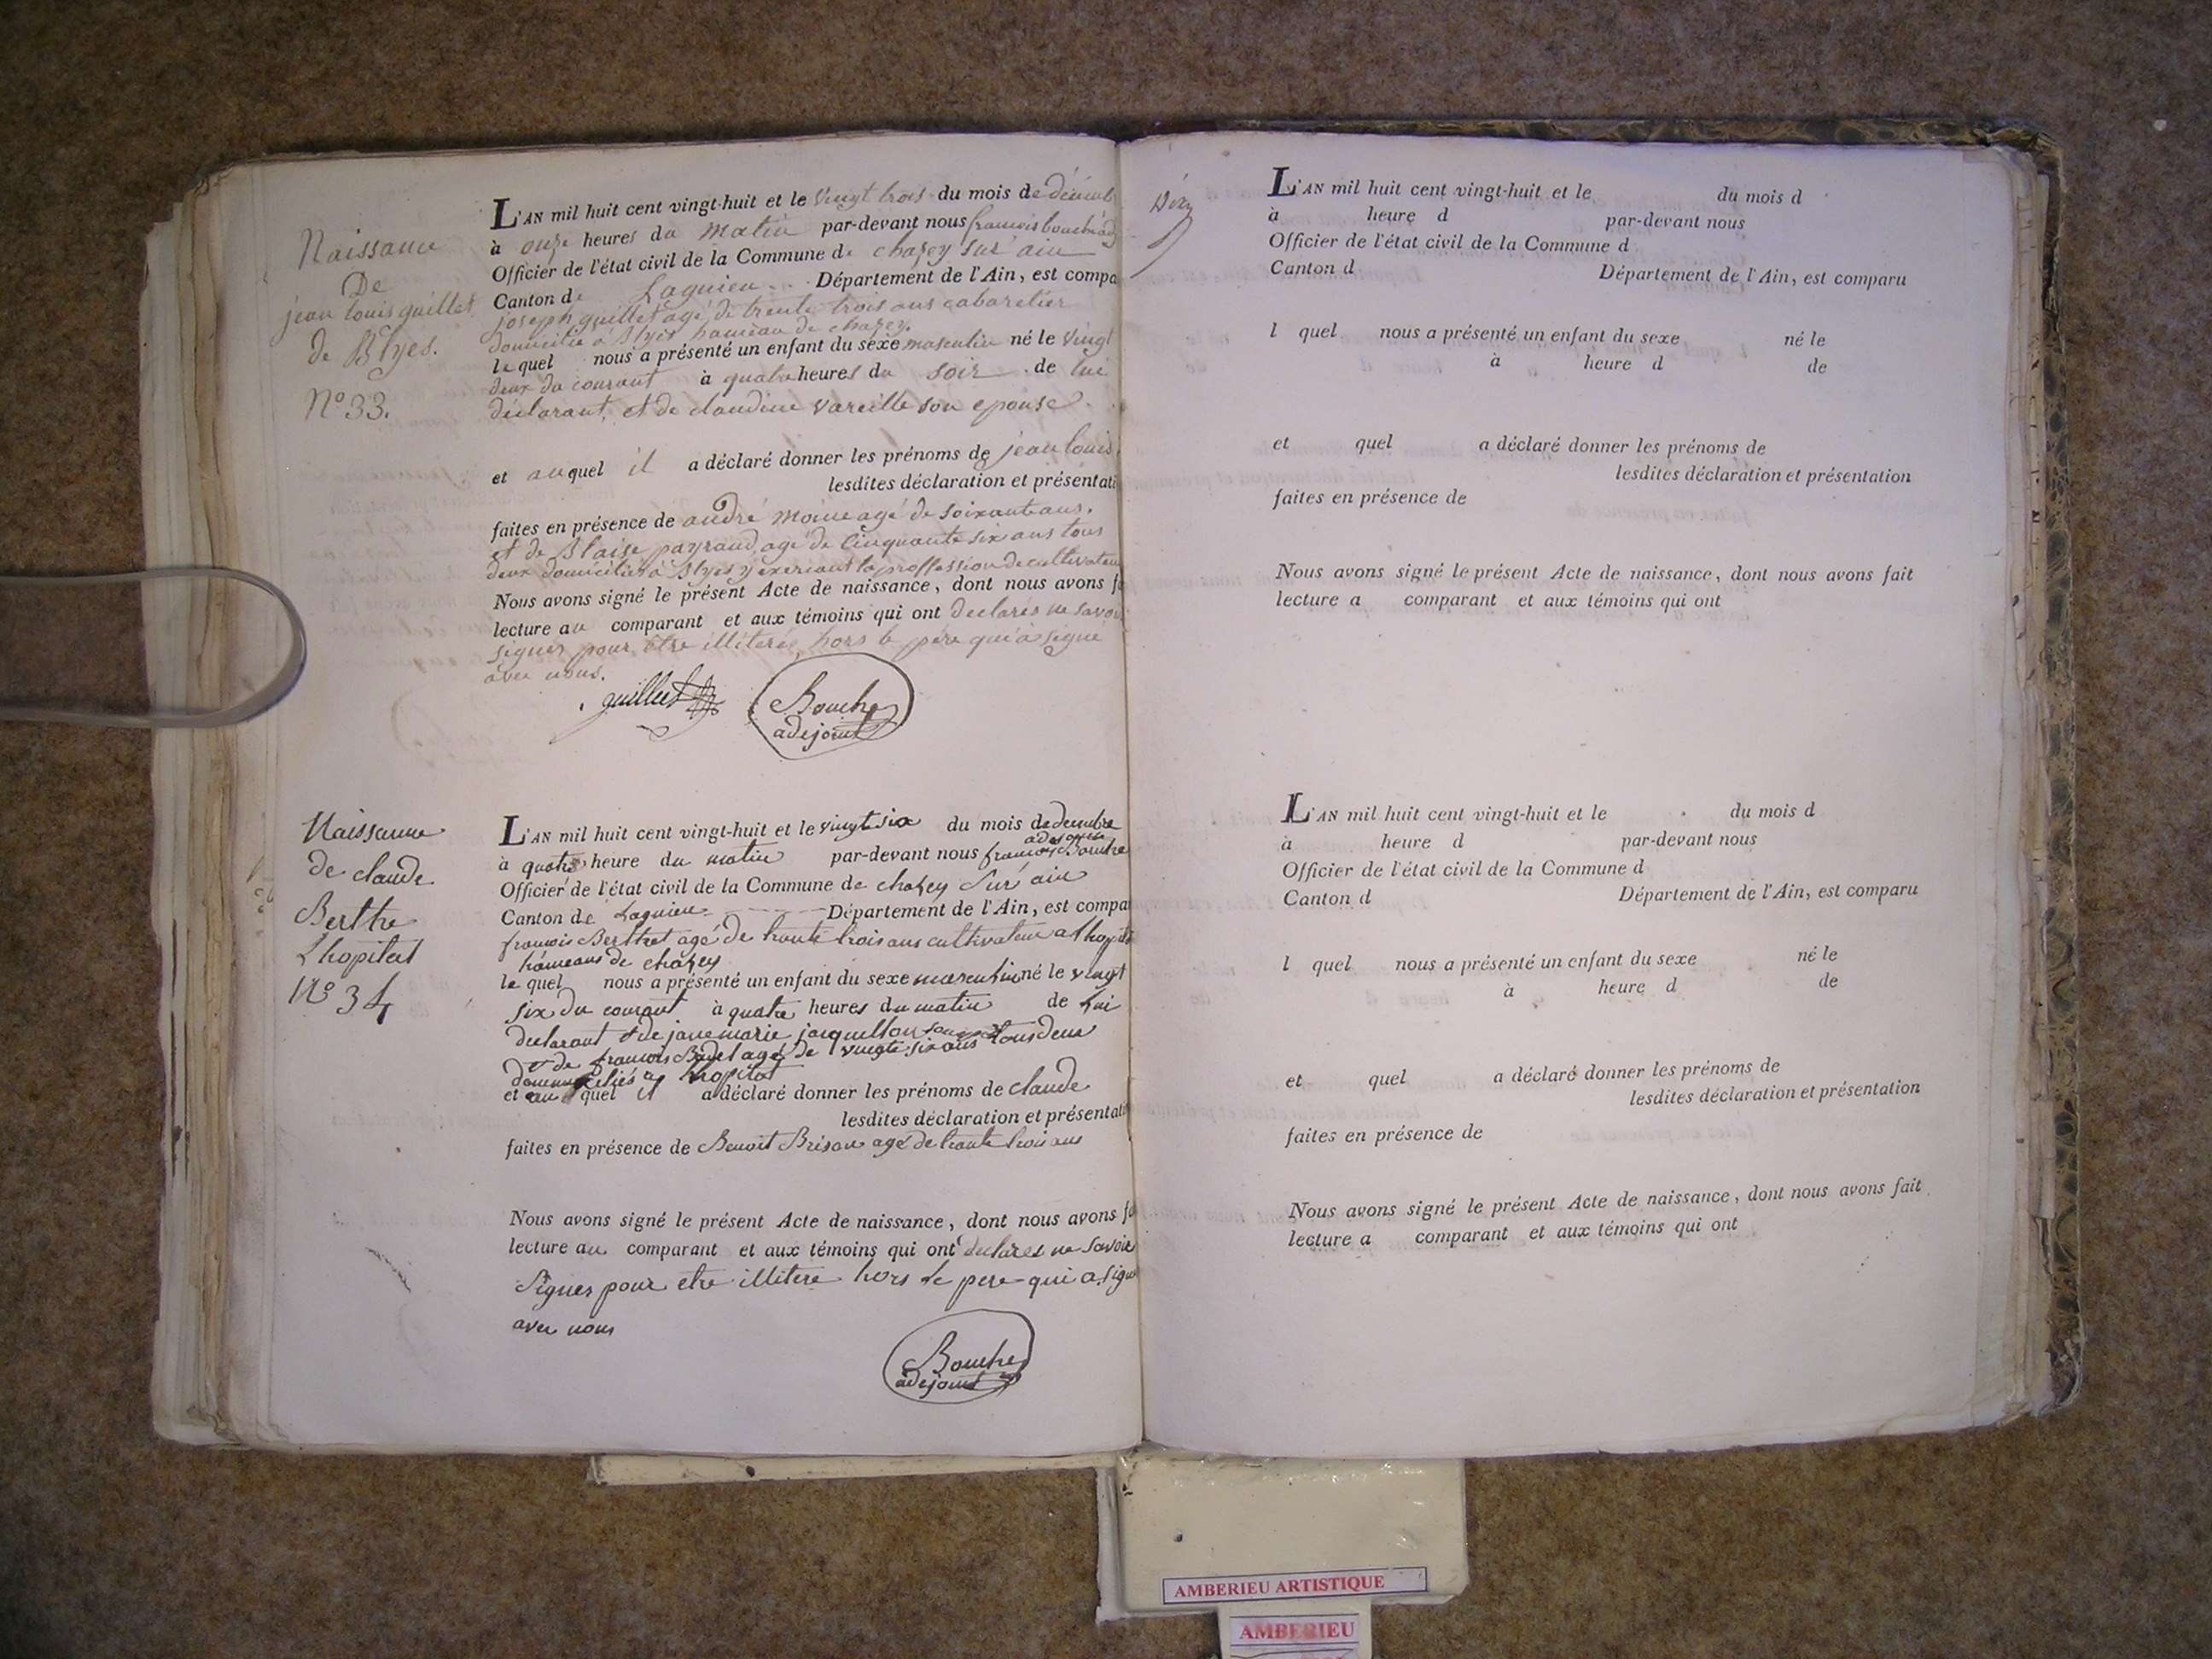 Naissance
De
jean louis guillet
de Blyes.
N° 33.
L'AN mil huit cent vingt-huit et le vingt trois du mois de décemb
à onze heures du matin par-devant nous francois bouché adj
Officier de l'état civil de la Commune de chazey sur ain
Canton de Lagnieu Département de l'Ain, est compa
joseph guillet agé de trente trois ans cabaretier
domicilié à Blyes hameau de chazey.
lequel nous a présenté un enfant du sexe masculin né le vingt
deux du courant à quatre heures du soir de lui
déclarant, et de claudine vareille son epouse
et auquel il a déclaré donner les prénoms de jean louis
lesdites déclaration et présentati
faites en présence de andré moine agé de soixante ans.
et de Blaise payraud, agé de cinquante six ans tous
deux domiciliés à Blyes y exercant la proffession de cultivateur
Nous avons signé le présent Acte de naissance, dont nous avons fa
lecture au comparant et aux témoins qui ont declarés ne savoir
signer pour être illiterés, hors le père qui à signé
avec nous.
guillet
Bouche
adejoint
Naissance
de claude
Berthe
Lhopital
N° 34
L'AN mil huit cent vingt-huit et le vingt six du mois de decembre
à quatre heure du matin par-devant nous francois Bouche
Officier de l'état civil de la Commune de chazey sur ain
Canton de Lagnieu Département de l'Ain, est compa
francois Berthet agé de trante trois ans cultivateur a Lhopital
hameaus de chazey
le quel nous a présenté un enfant du sexe masculin né le vingt
six du courant à quatre heures du matin de lui
declarant et de jane marie jacquellon tous deux
et de francois Badel agé de vingte six ans
domiciliés a lhopital
et au quel il a déclaré donner les prénoms de claude
lesdites déclaration et présentati
faites en présence de Benoit Brison agé de trante trois ans
Nous avons signé le présent Acte de naissance, dont nous avons fa
lecture au comparant et aux témoins qui ont declares ne savoir
signer pour etre illitere hors le pere qui a signé
avec nous
Bouche
adejoint
L'AN mil huit cent vingt-huit et le du mois d
à heure d par-devant nous
Officier de l'état civil de la Commune d
Canton d Département de l'Ain, est comparu
l quel nous a présenté un enfant du sexe né le
à heure d de
et quel a déclaré donner les prénoms de
lesdites déclaration et présentation
faites en présence de
Nous avons signé le présent Acte de naissance, dont nous avons fait
lecture a comparant et aux témoins qui ont
L'AN mil huit cent vingt-huit et le du mois d
à heure d par-devant nous
Officier de l'état civil de la Commune d
Canton d Département de l'Ain, est comparu
l quel nous a présenté un enfant du sexe né le
à heure d de
et quel a déclaré donner les prénoms de
lesdites déclaration et présentation
faites en présence de
Nous avons signé le présent Acte de naissance, dont nous avons fait
lecture a comparant et aux témoins qui ont
AMBERIEU ARTISTIQUE
AMBERIEU